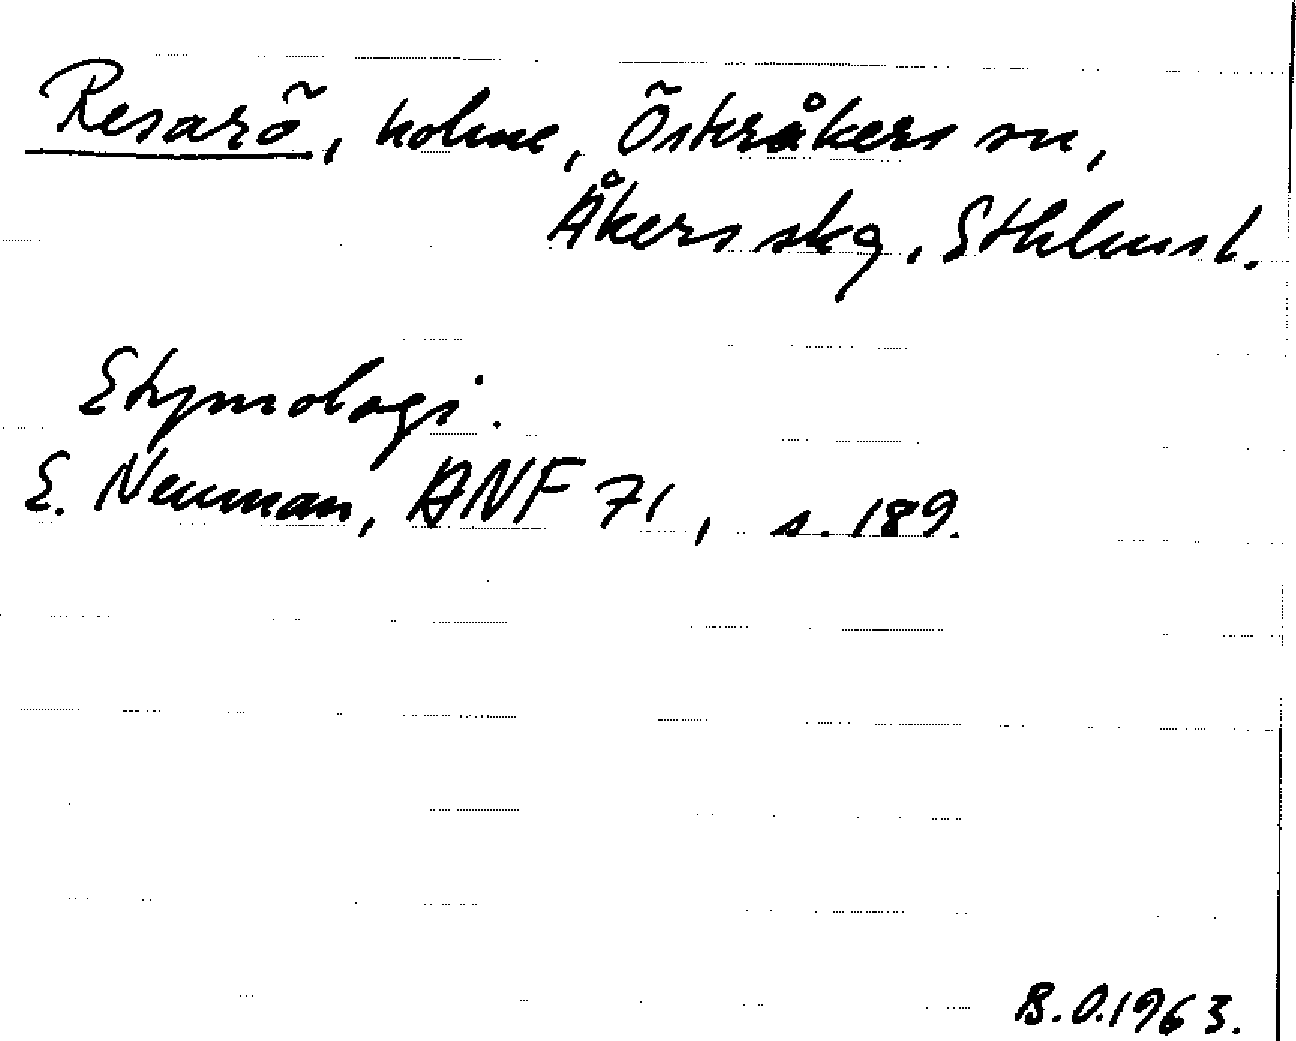 Resarö, holme, Österåkers sn,
Åkers skg, Sthlms l.
Etymologi.
E. Neuman, ANF 71, s. 189.
B.O. 1963.